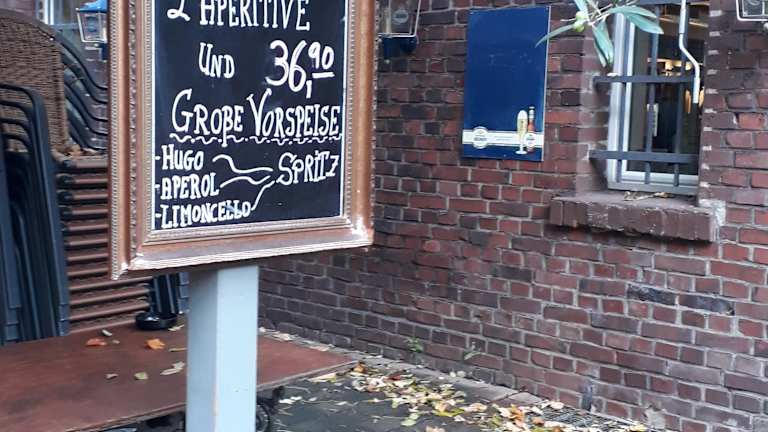 2 APERITIVE
UND 36,90
GROßE VORSPEISE
-HUGO
-APEROL SPRITZ
-LIMONCELLO